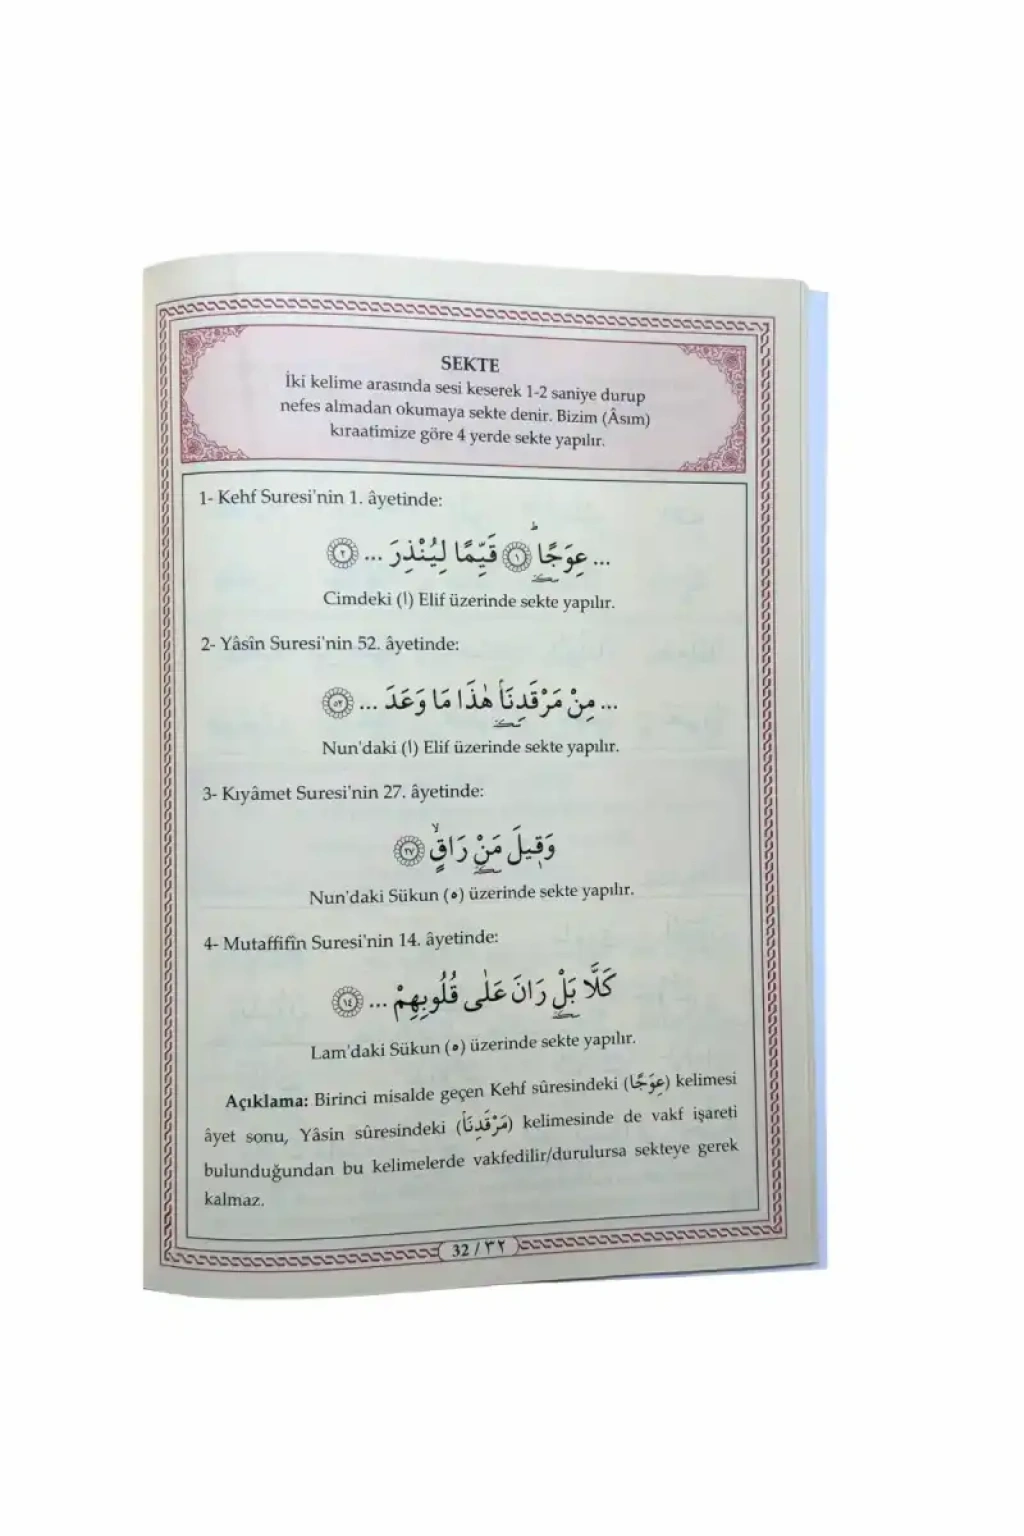 SEKTE
İki kelime arasında sesi keserek 1-2 saniye durup
nefes almadan okumaya sekte denir. Bizim (Âsım)
kıraatimize göre 4 yerde sekte yapılır.
1- Kehf Suresi'nin 1. âyetinde:
... عِوَجًاۜ ﴿١﴾ قَيِّمًا لِيُنْذِرَ ... ﴿٢﴾
Cimdeki (ا) Elif üzerinde sekte yapılır.
2- Yâsîn Suresi'nin 52. âyetinde:
... مِنْ مَرْقَدِنَاۜ هٰذَا مَا وَعَدَ ... ﴿٥٢﴾
Nun'daki (ا) Elif üzerinde sekte yapılır.
3- Kıyâmet Suresi'nin 27. âyetinde:
وَق۪يلَ مَنْۜ رَاقٍۙ ﴿٢٧﴾
Nun'daki Sükun (ه) üzerinde sekte yapılır.
4- Mutaffifîn Suresi'nin 14. âyetinde:
كَلَّا بَلْۜ رَانَ عَلٰى قُلُوبِهِمْ ... ﴿١٤﴾
Lam'daki Sükun (ه) üzerinde sekte yapılır.
Açıklama: Birinci misalde geçen Kehf sûresindeki (عِوَجًا) kelimesi
âyet sonu, Yâsîn sûresindeki (مَرْقَدِنَا) kelimesinde de vakf işareti
bulunduğundan bu kelimelerde vakfedilir/durulursa sekteye gerek
kalmaz.
32 / ٣٢